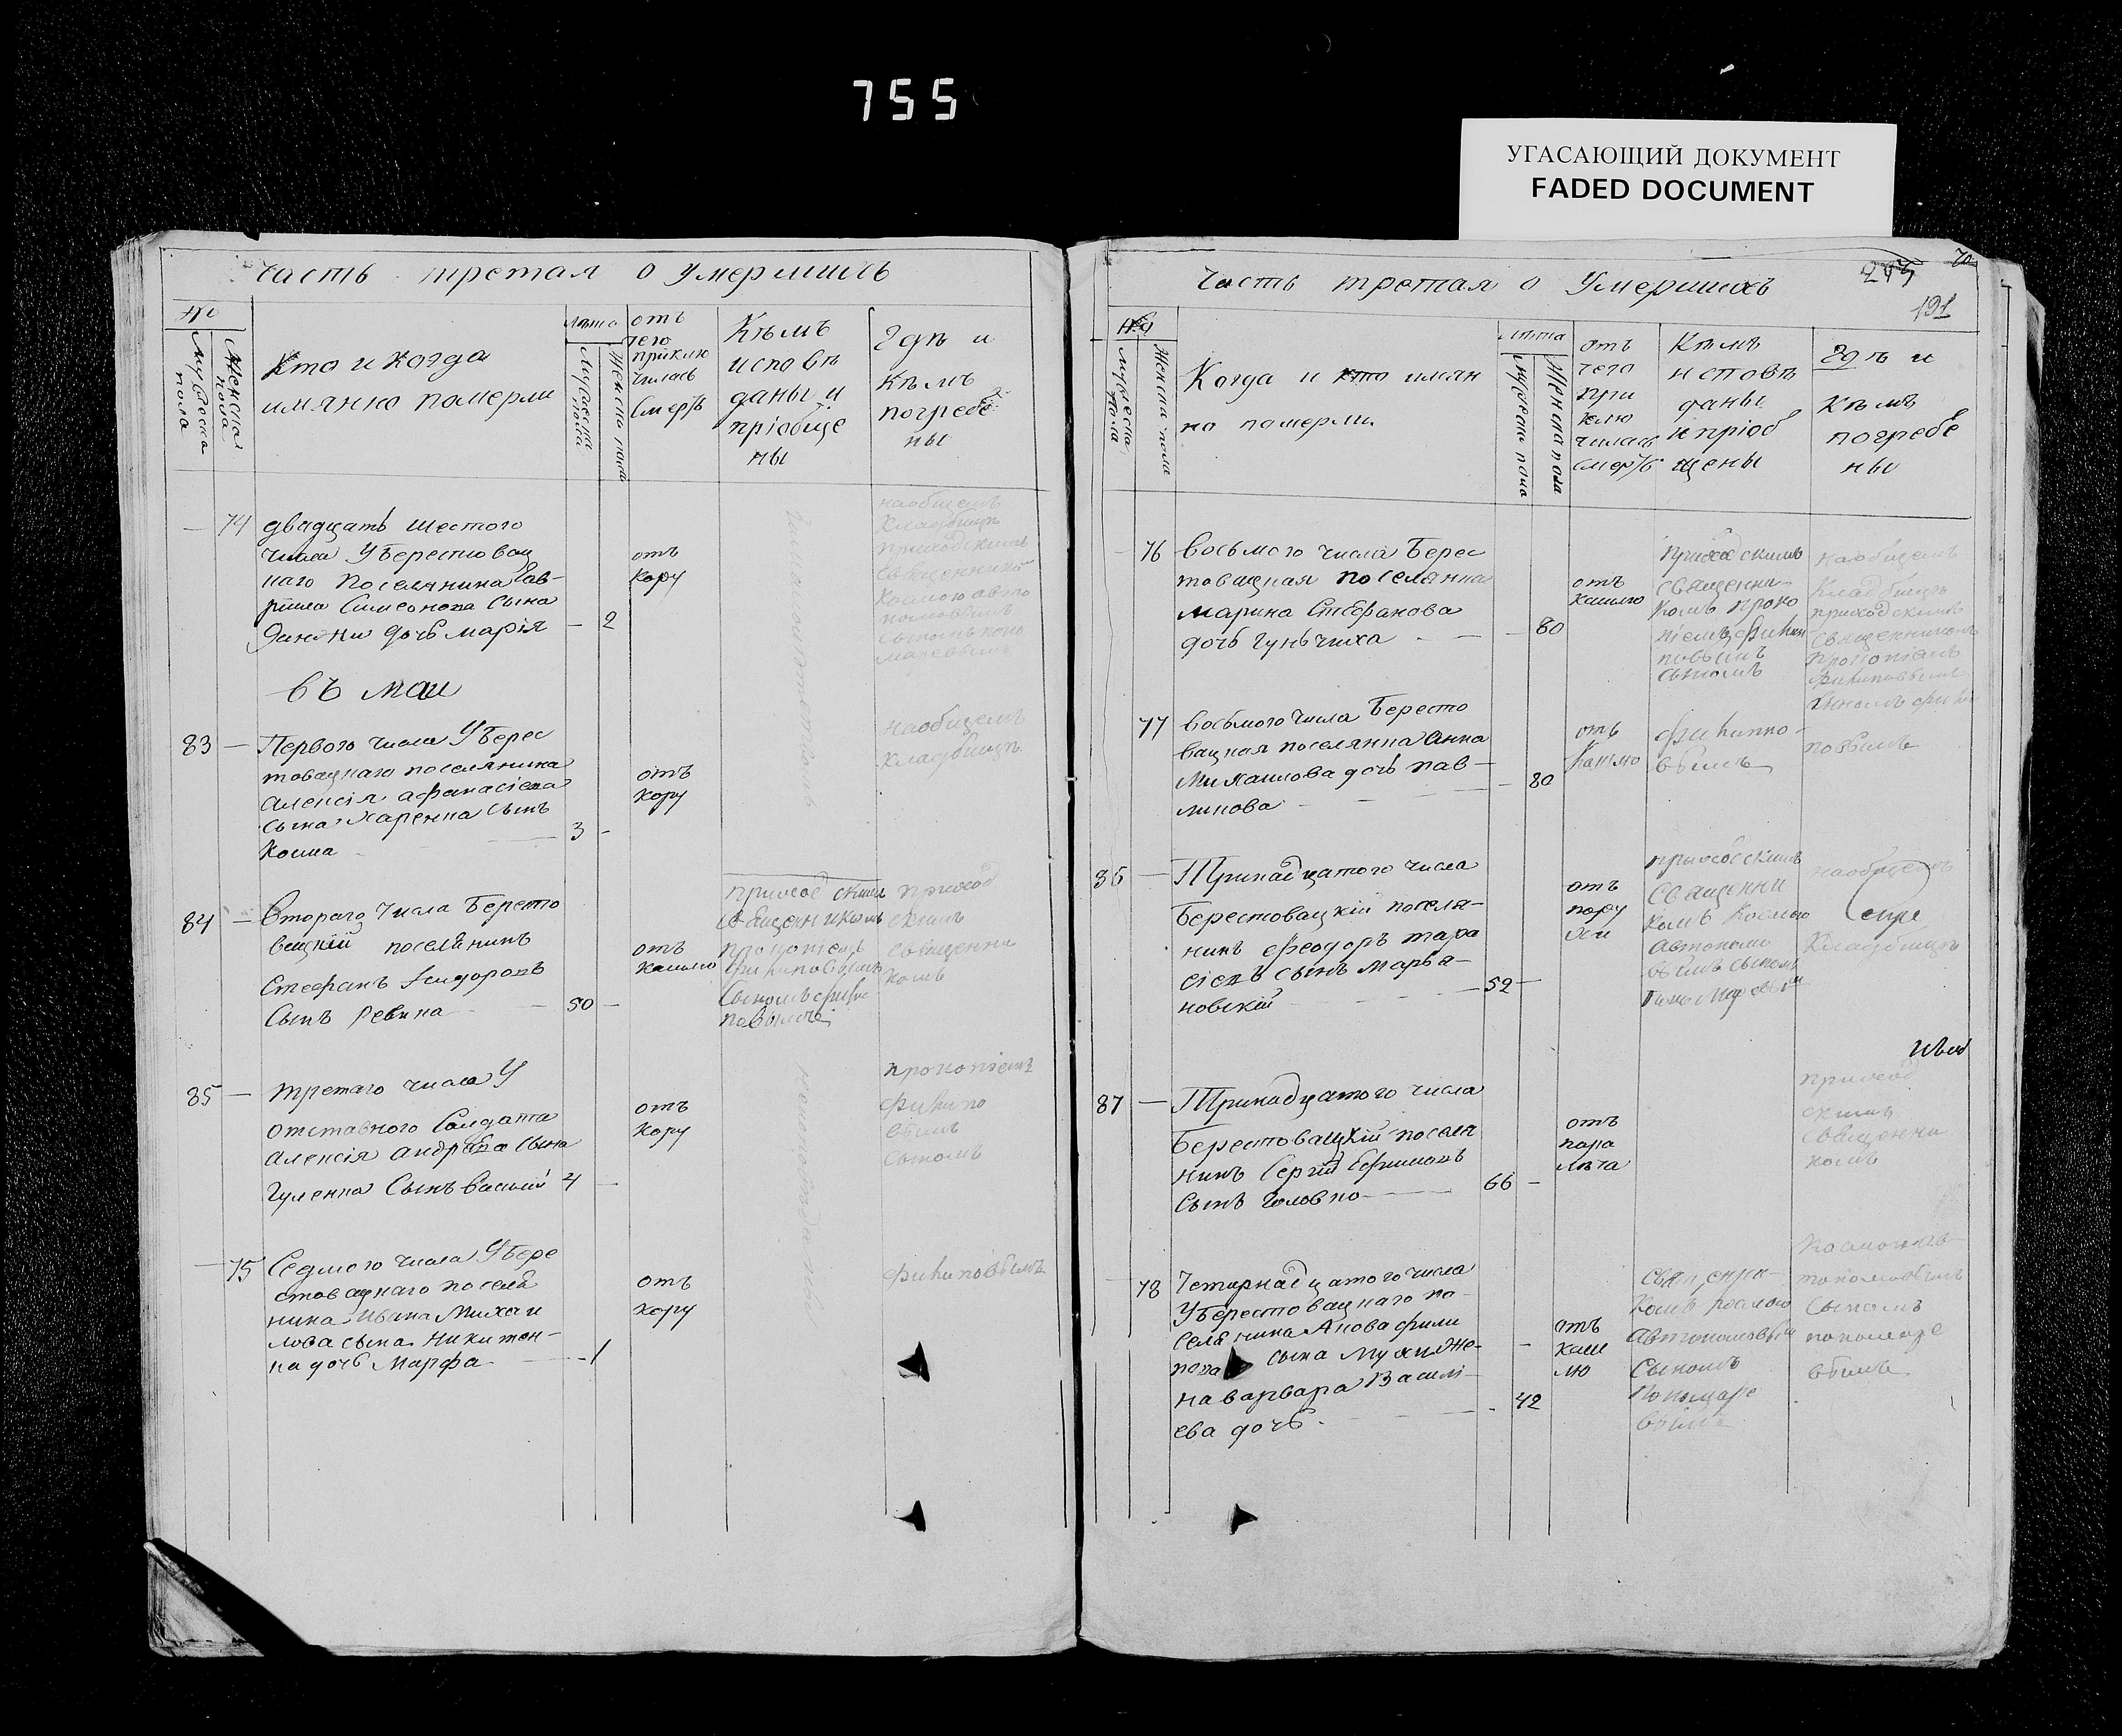 755
УГАСАЮЩИЙ ДОКУМЕНТ
FADED DOCUMENT
Часть третая о умершихъ
№
Мужеска пола
Женска пола
Кто и когда
имянно померли
лѣта
Мужеска пола
Женска пола
отъ
чего
приклю
чилась
смерть
Кѣмъ
исповѣ
даны и
пріобще
ны
Гдѣ и
кѣмъ
погребе
ны
74
двадцать шестого
числа У Берестовац
наго поселянина Гав-
рила Симеонова сына
дочь Марія
2
отъ
кору
наобщемъ
кладбищѣ
приходскимъ
священникомъ
въ маи
83
Перваго числа У Берес
товацнаго поселянина
Алексія Афанасіева
сына Харенка сынъ
Косма
3
отъ
кору
наобщемъ
кладбищѣ
84
Втораго числа Бересто
вацкій поселянинъ
Стефанъ Исидоровъ
сынъ Ревина
50
отъ
кашлю
приходскимъ
священникомъ
Прокопіемъ
Филиповымъ
сыномъ Фили
повымъ
приход
скимъ
священни
комъ
85
третаго числа У
отставного Салдата
Алексія Андрѣева сына
Гуленка сынъ Василій
4
отъ
кору
прокопіемъ
филипо
вымъ
сыномъ
75
Седмого числа У Бере
стовацнаго поселя
нина Ивана Михаи
лова сына Никитен-
ка дочь Марфа
1
отъ
кору
филиповымъ
Часть третая о Умершихъ
191
№
Мужеска пола
Женска пола
Когда и кто имян
но померли
лѣта
Мужеска пола
Женска пола
отъ
чего
при
клю
чилась
смерть
Кѣмъ
исповѣ
даны
и пріоб
щены
Гдѣ и
кѣмъ
погребе
ны
76
Восьмого числа Берес
товацкая поселянка
Марина Стефанова
дочь Гуньчиха
80
отъ
кашлю
приходскимъ
священни-
комъ Проко
піемъ Филип
повымъ
сыномъ
наобщемъ
кладбищѣ
приходскимъ
священникомъ
Прокопіемъ
филиповымъ
сыномъ фили
77
Восьмого числа Бересто
вацкая поселянка Анна
Михаилова дочь Пав-
линова
80
отъ
кашлю
Филиппо-
вымъ
повымъ
86
Тринадцатого числа
Берестовацкій поселя-
нинъ Феодоръ Тара
сіевъ сынъ Марья-
новскій
52
отъ
приходскимъ
священни
комъ Космою
Автономо
вымъ сыномъ
Пономаревымъ
наобщемъ
кладбищѣ
87
Тринадцатого числа
Берестовацкій поселя
нинъ Сергій Ефимовъ
сынъ Головко
66
отъ
пара
лѣча
приход
скимъ
священни
комъ
78
Четырнадцатого числа
У Берестовацнаго по-
селянина Якова Фили
пова сына Мухи же-
на Варвара Василі-
ева дочь
42
отъ
каш
лю
священни-
комъ Космою
Автономовымъ
сыномъ
Пономаре
вымъ
Космою Ав-
тономовымъ
сыномъ
пономаре
вымъ